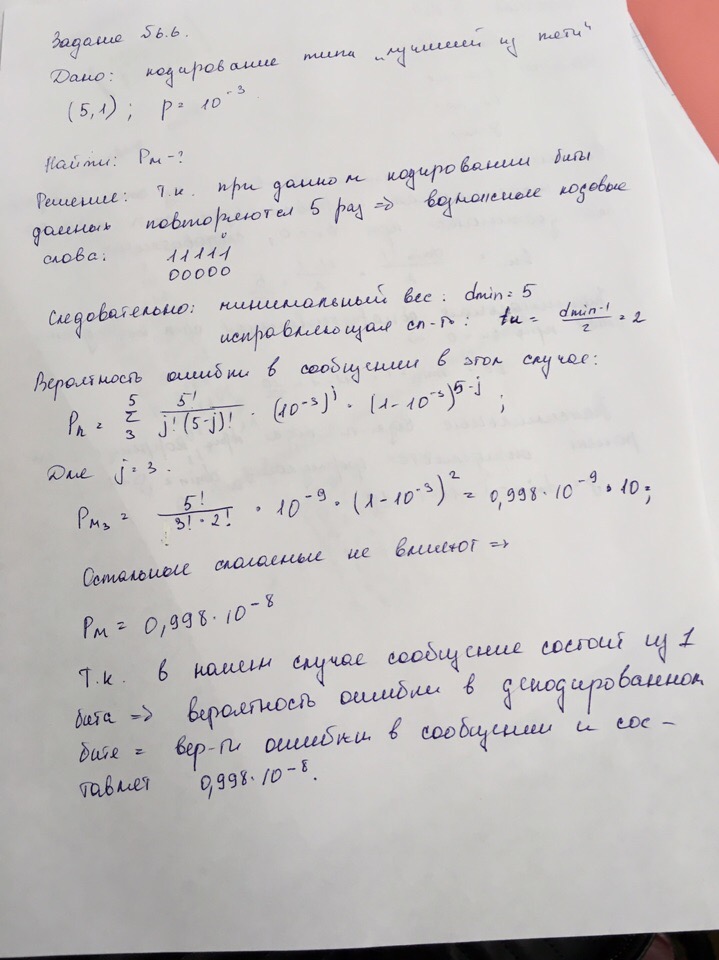 Задание 56.6.
Дано: кодирование типа „лучший из пяти“
(5,1) ; p = 10⁻³
Найти: Pм - ?
Решение: т.к. при данном кодировании биты
данных повторяются 5 раз => возможные кодовые
слова: 11111
00000
Следовательно: минимальный вес: dmin = 5
исправляющая сп-ть: tи = (dmin-1)/2 = 2
Вероятность ошибки в сообщении в этом случае:
Pп = 5 Σ 3 5!/(j!(5-j)!) · (10⁻³)ʲ · (1-10⁻³)⁵⁻ʲ ;
Для j = 3.
Pм₃ = 5!/(3!·2!) · 10⁻⁹ · (1-10⁻³)² = 0,998·10⁻⁹·10;
Остальные слагаемые не влияют =>
Pм = 0,998·10⁻⁸
Т.к. в нашем случае сообщение состоит из 1
бита => вероятность ошибки в декодированном
бите = вер-ти ошибки в сообщении и сос-
тавляет 0,998·10⁻⁸.